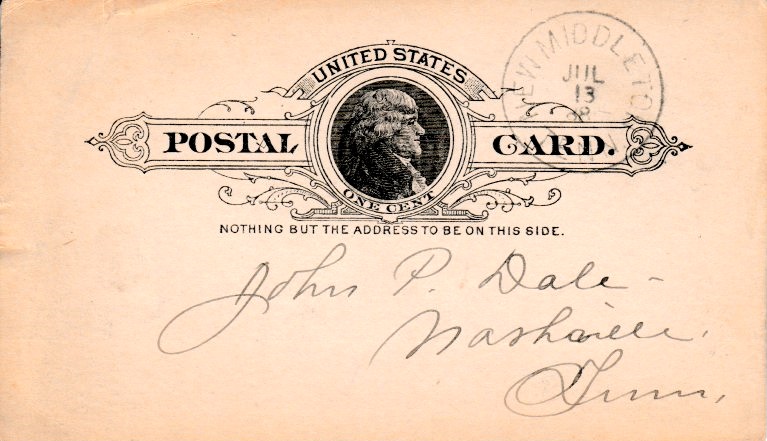 UNITED STATES
POSTAL CARD.
ONE CENT
NOTHING BUT THE ADDRESS TO BE ON THIS SIDE.
NEW MIDDLETO
JUL
13
John P. Dale
Nashville,
Tenn,